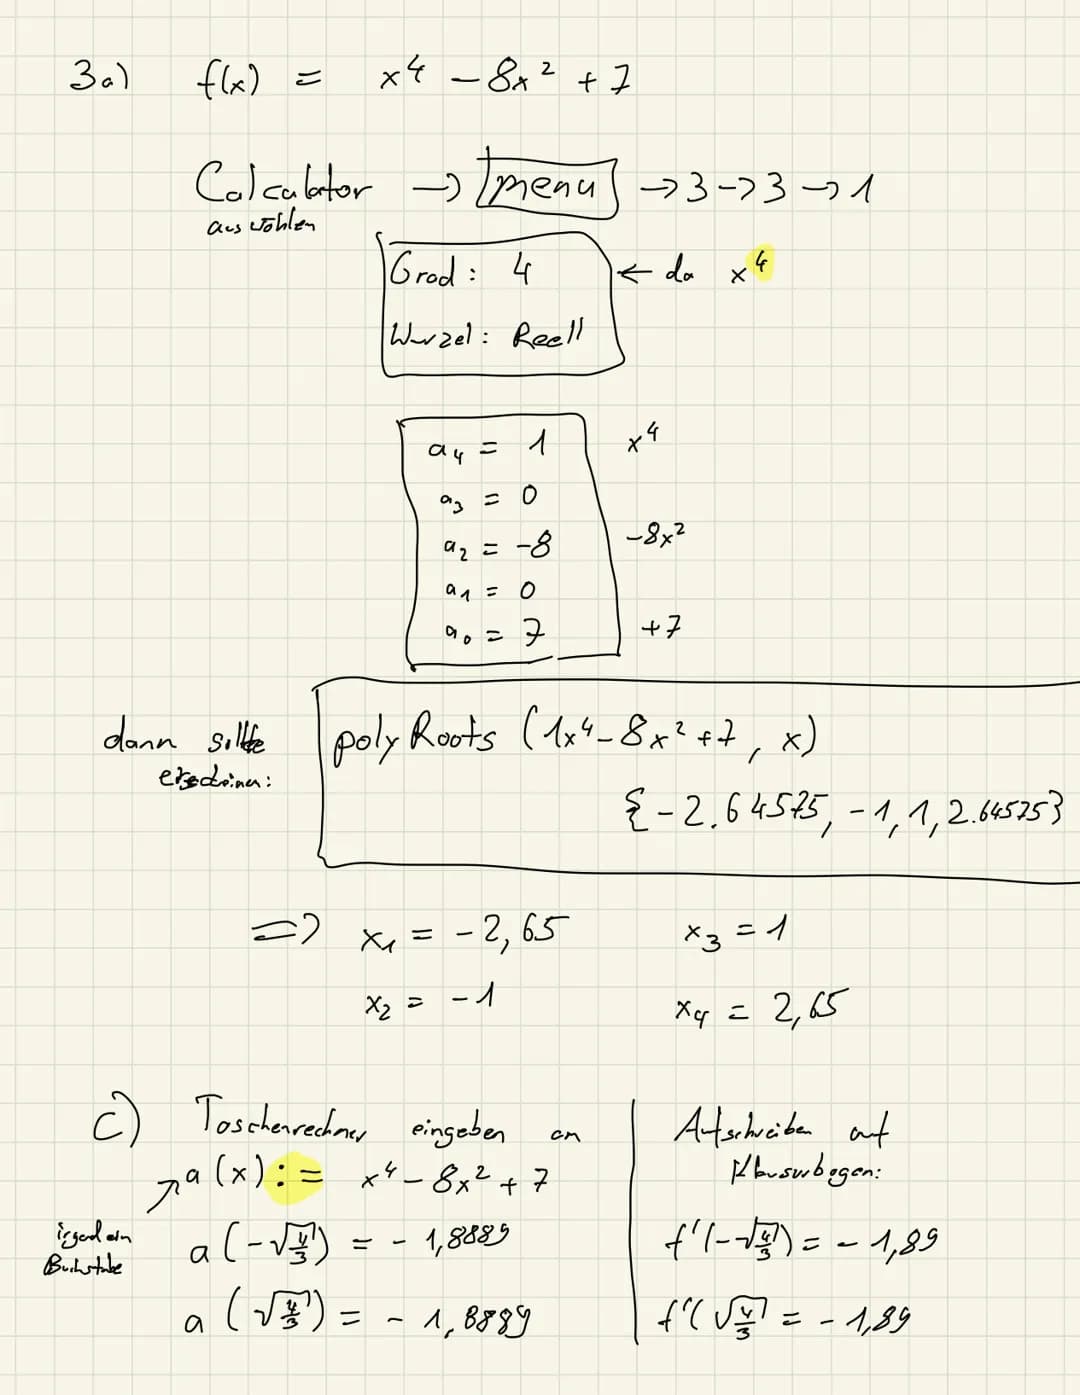 3a) f(x) = x⁴ - 8x² + 7
Calculator → menu → 3 → 3 → 1
auswählen
Grad: 4 ← da x⁴
Wurzel: Reell
a₄ = 1 x⁴
a₃ = 0
a₂ = -8 -8x²
a₁ = 0
a₀ = 7 +7
dann sollte
erscheinen:
polyRoots (1x⁴-8x²+7, x)
{-2.64575, -1, 1, 2.645753}
=> x₁ = -2,65 x₃ = 1
x₂ = -1 x₄ = 2,65
c) Taschenrechner eingeben an
a(x) := x⁴ - 8x² + 7
irgendein
Buchstabe
a(-√4/3) = -1,8889
a(√4/3) = -1,8889
Aufschreiben auf
Klausurbogen:
f'(-√4/3) = -1,89
f'(√4/3 = -1,89